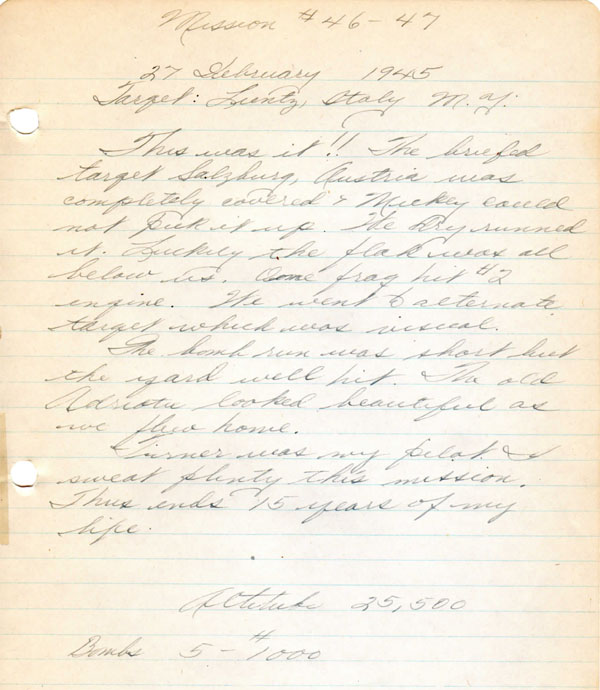 Mission #46-47
27 February 1945
Target: Luntz, Italy M.Y.
This was it!! The briefed
target Salzburg, Austria was
completely covered & Mickey could
not pick it up. We Dry runned
it. Luckily the flak was all
below us. One frag hit #2
engine. We went to alternate
target which was visual.
The bomb run was short but
the yard well hit. The old
Adriatic looked beautiful as
we flew home.
Turner was my pilot & I
sweat plenty this mission.
Thus ends 15 years of my
life.
Altitude 25,500
Bombs 5-#1000